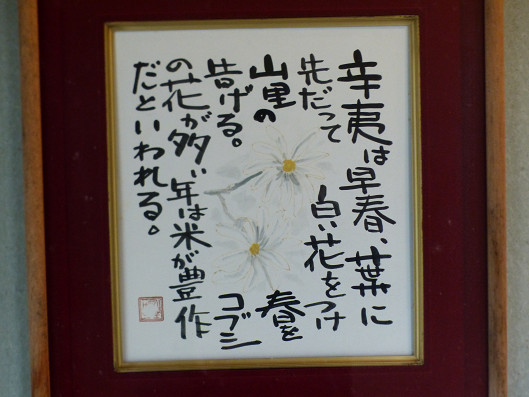 辛夷は早春、葉に
先だって 白い花をつけ
山里の 春を
告げる。 コブシ
の花が多い年は米が豊作
だといわれる。